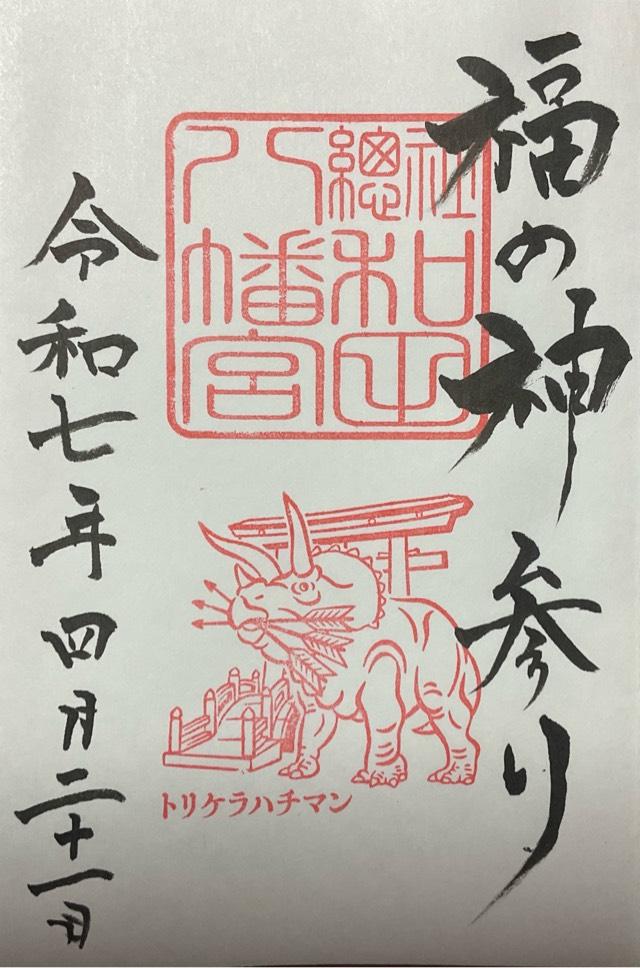 福の神参り
總社
和田
八幡宮
トリケラハチマン
令和七年四月二十一日